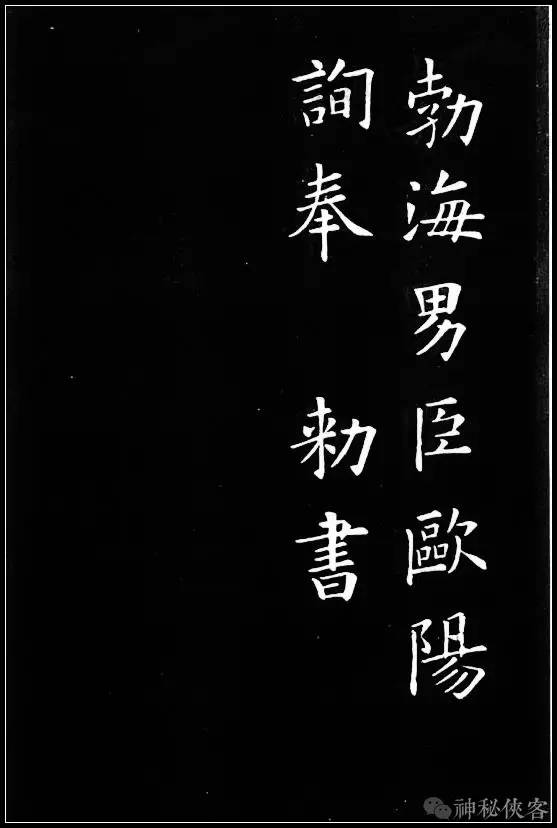 勃海男臣歐陽
詢奉 勑書
神秘侠客